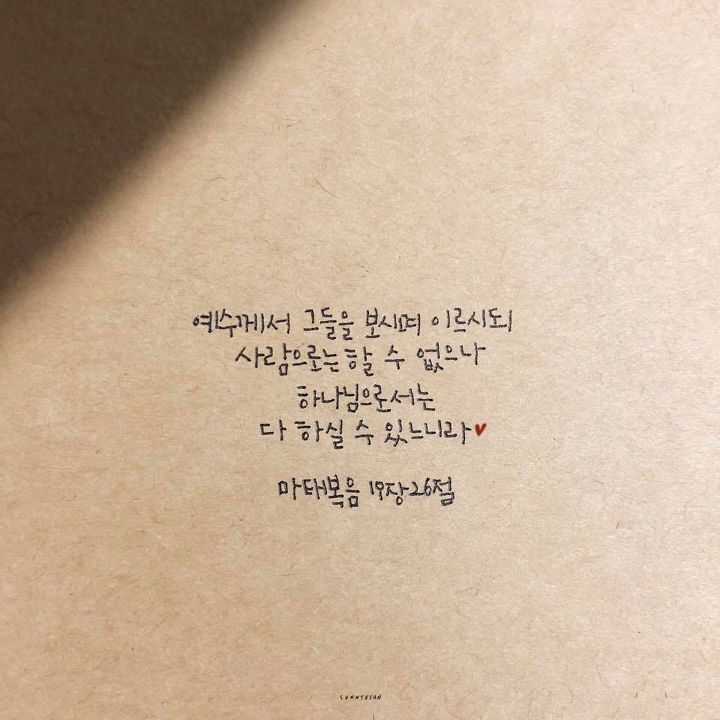 예수께서 그들을 보시며 이르시되
사람으로는 할 수 없으나
하나님으로서는
다 하실 수 있느니라♥
마태복음 19장 26절